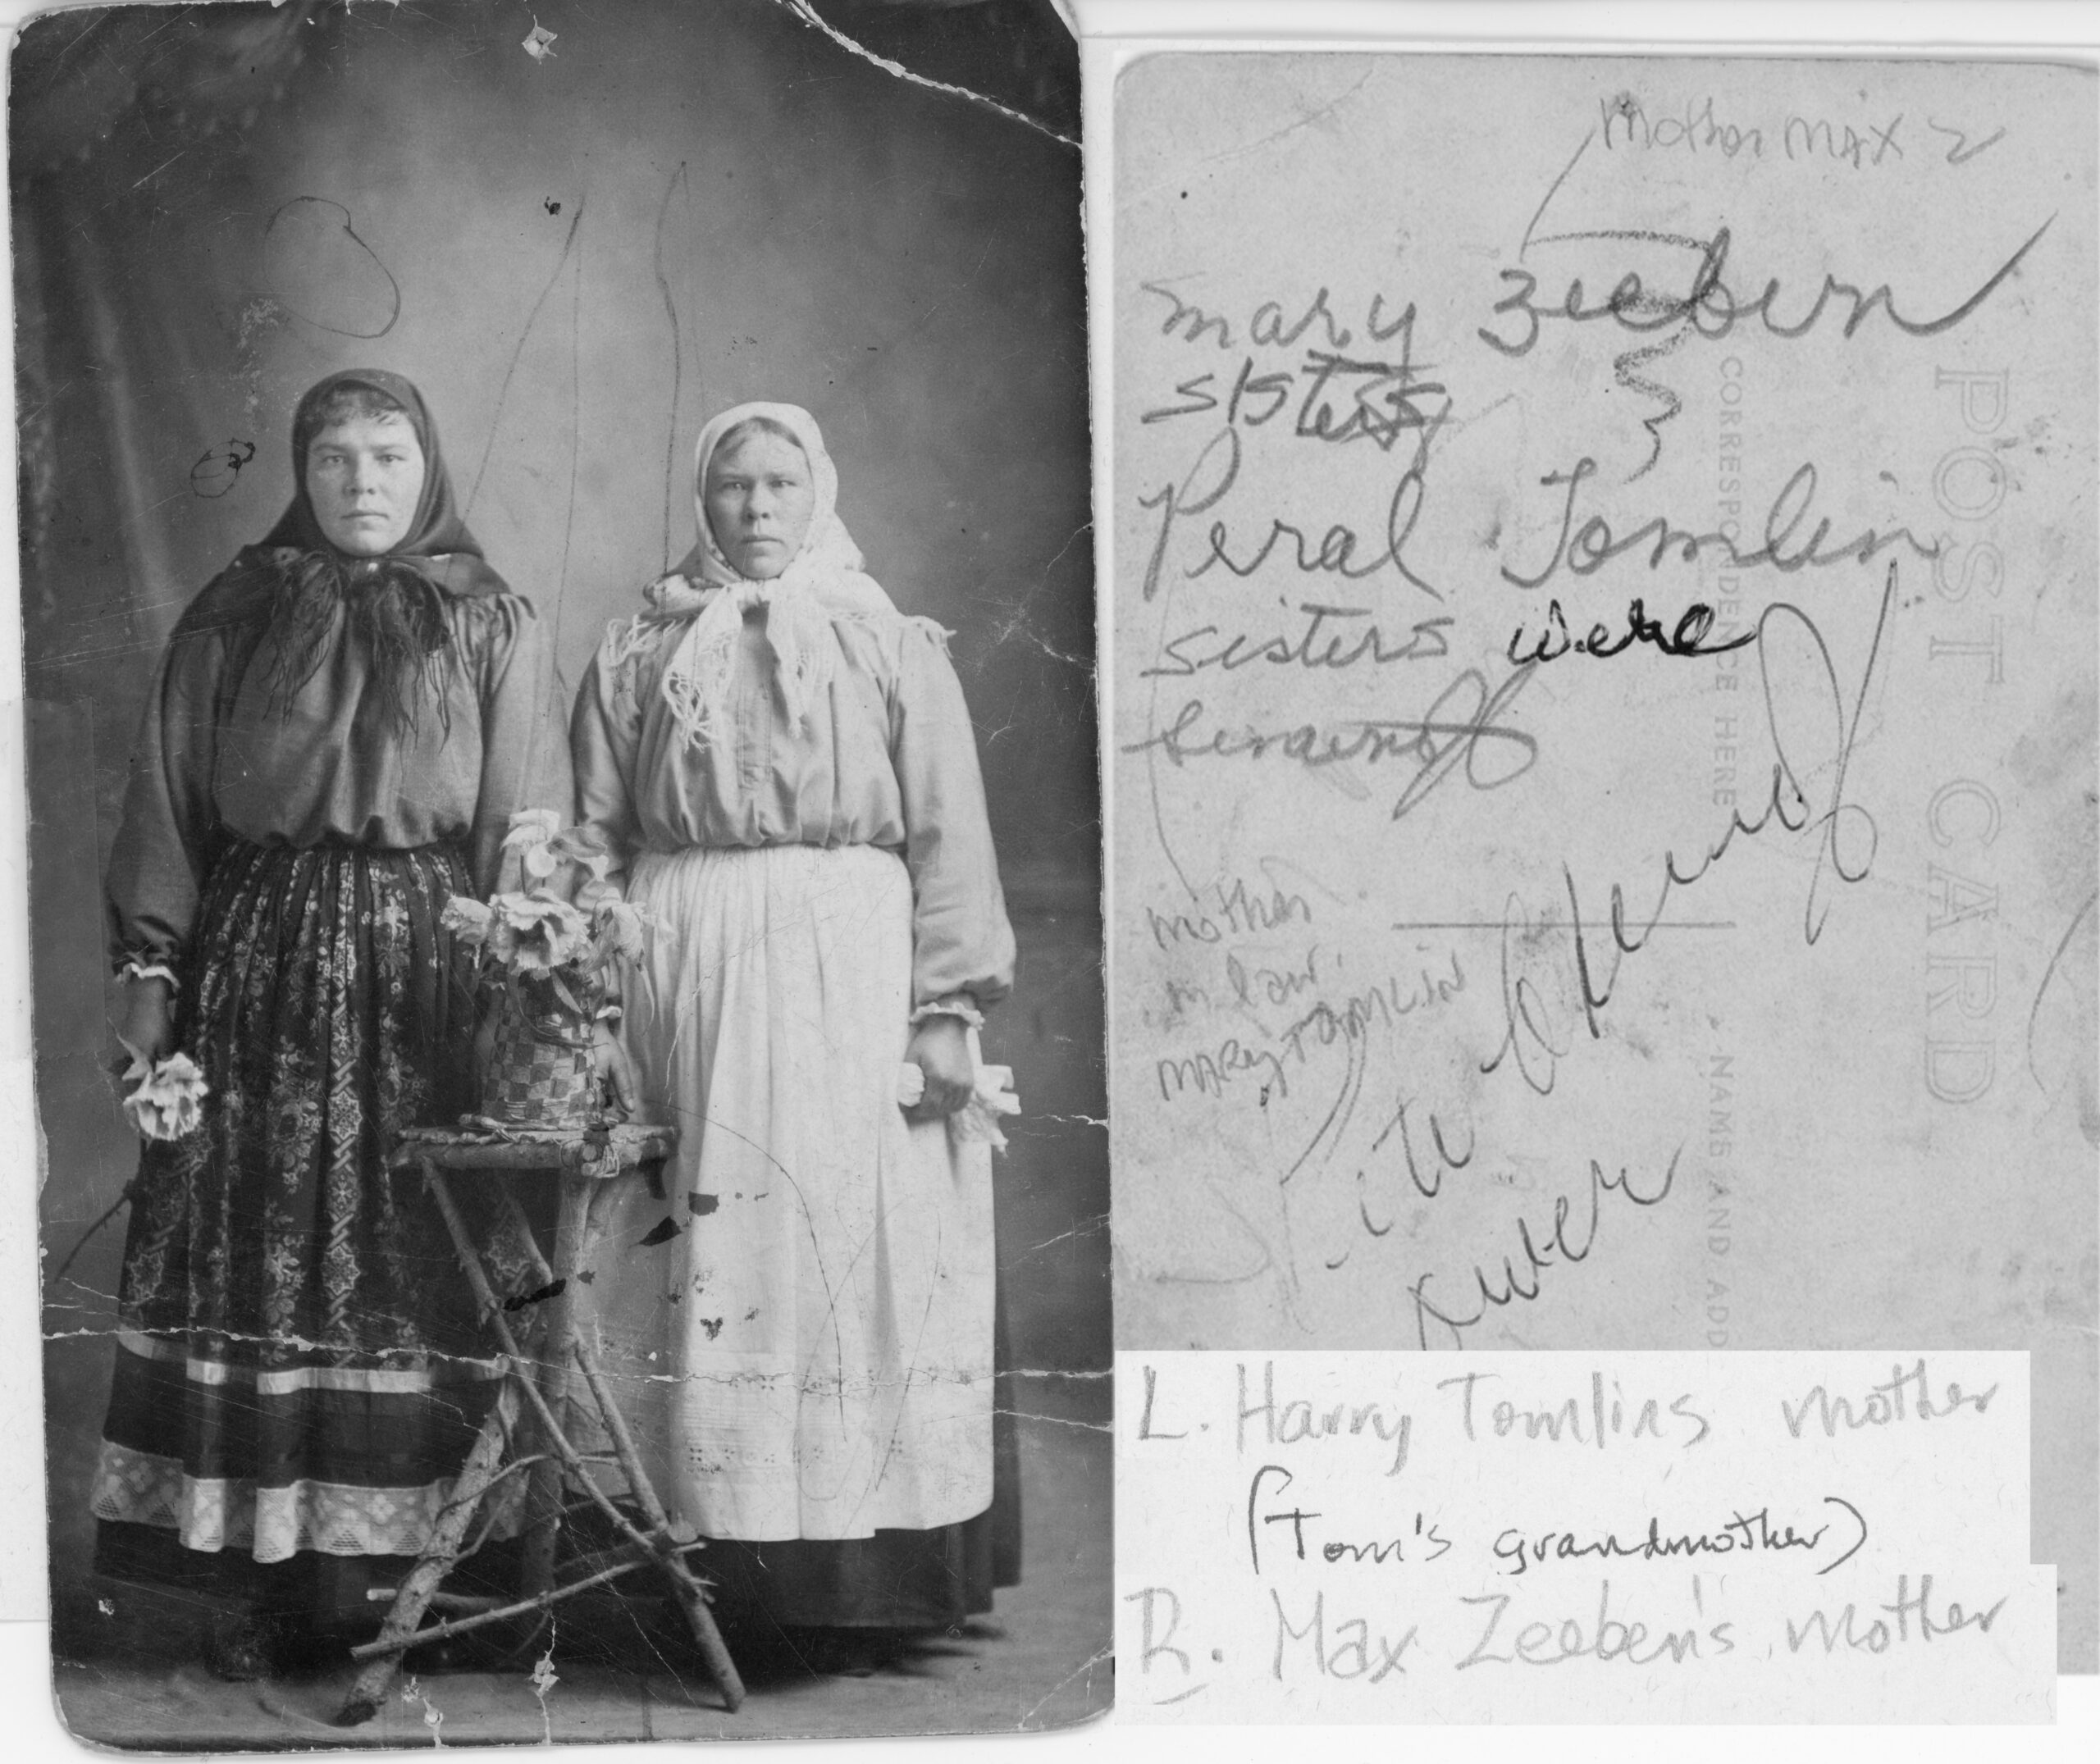 Mother MAX Z
Mary Zeeben
sisters
Peral Tomlin
sisters were
mother
in law
MARY TOMLIN
POST CARD
CORRESPONDENCE HERE
NAME AND ADD
L. Harry Tomlins mother
(Tom's grandmother)
R. Max Zeeben's mother